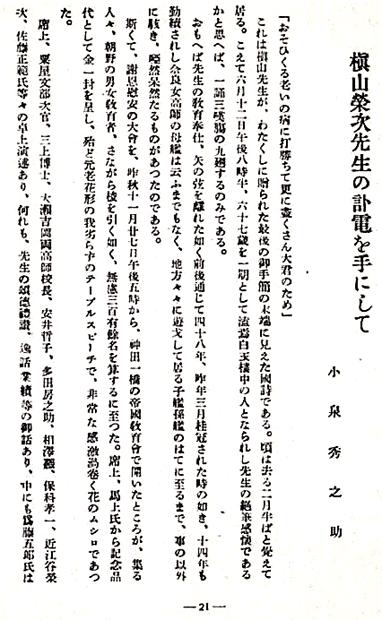 槇山榮次先生の訃電を手にして
小泉秀之助
「おそひくる老いの病に打勝ちて更に盡くさん大君のため」
これは槇山先生が、わたくしに贈られた最後の御手簡の末端に見えた國詩である。頃は去る二月半ばと覺えて
居る。こえて六月十二日午後八時半、六十七歳を一期として溘焉白玉樓中の人となられし先生の絶筆感懷である
かと思へば、一誦三嘆膓の九廻するのみである。
おもへば先生の教育奉仕、矢の弦を離れた如く前後通じて四十八年、昨年三月桂冠された時の如き、十四年も
勤續されし奈良女高師の母艦は云ふまでもなく、地方々々に遊弋して居る子艦孫艦のはてに至るまで、事の以外
に駭き、啞然呆然たるものがあつたのである。
斯くて、謝恩慰安の大會を、昨秋十一月廿七日午後五時から、神田一橋の帝國教育會で開いたところが、集る
人々、朝野の男女教育者、さながら綾を引く如く、無慮三百有餘名を算するに至つた。席上、馬上氏から記念品
代として金一封を呈し、殆ど元老花形の我劣らずのテーブルスピーチで、非常な感激渦卷く花のムシロであつ
た。
席上、粟屋文部次官、三上博士、大瀬吉岡兩高師校長、安井哲子、多田房之助、相澤熈、保科孝一、近江谷榮
次、佐藤正範氏等々の卓上演述あり、何れも、先生の頌德禮讃、逸話業績等の御話あり、中にも爲藤五郎氏は
—21—